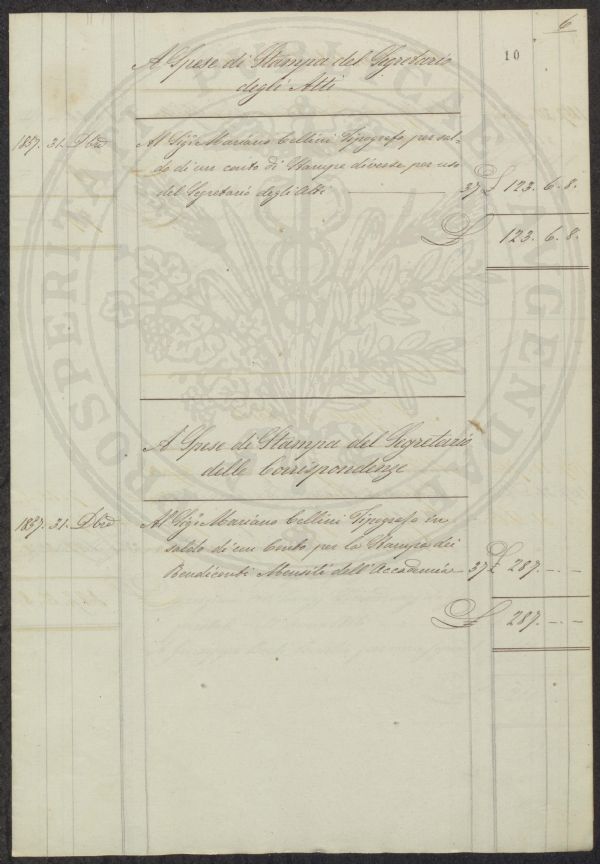 6
10
A Spese di Stampa del Segretario
degli Atti
1837. 31. Dbre Al Sigr Mariano Cellini Tipografo per sal-
do di un conto di Stampe diverse per uso
del Segretario degli Atti 37 £ 123. 6. 8.
£ 123. 6. 8.
A Spese di Stampa del Segretario
delle Corrispondenze
1837. 31. Dbre Al Sigr Mariano Cellini Tipografo in
saldo di un Conto per la Stampa dei
Rendiconti Mensili dell'Accademia 37 £ 287. -. -
£ 287. -. -
PROSPERITATI PUBLICAE AUGENDAE